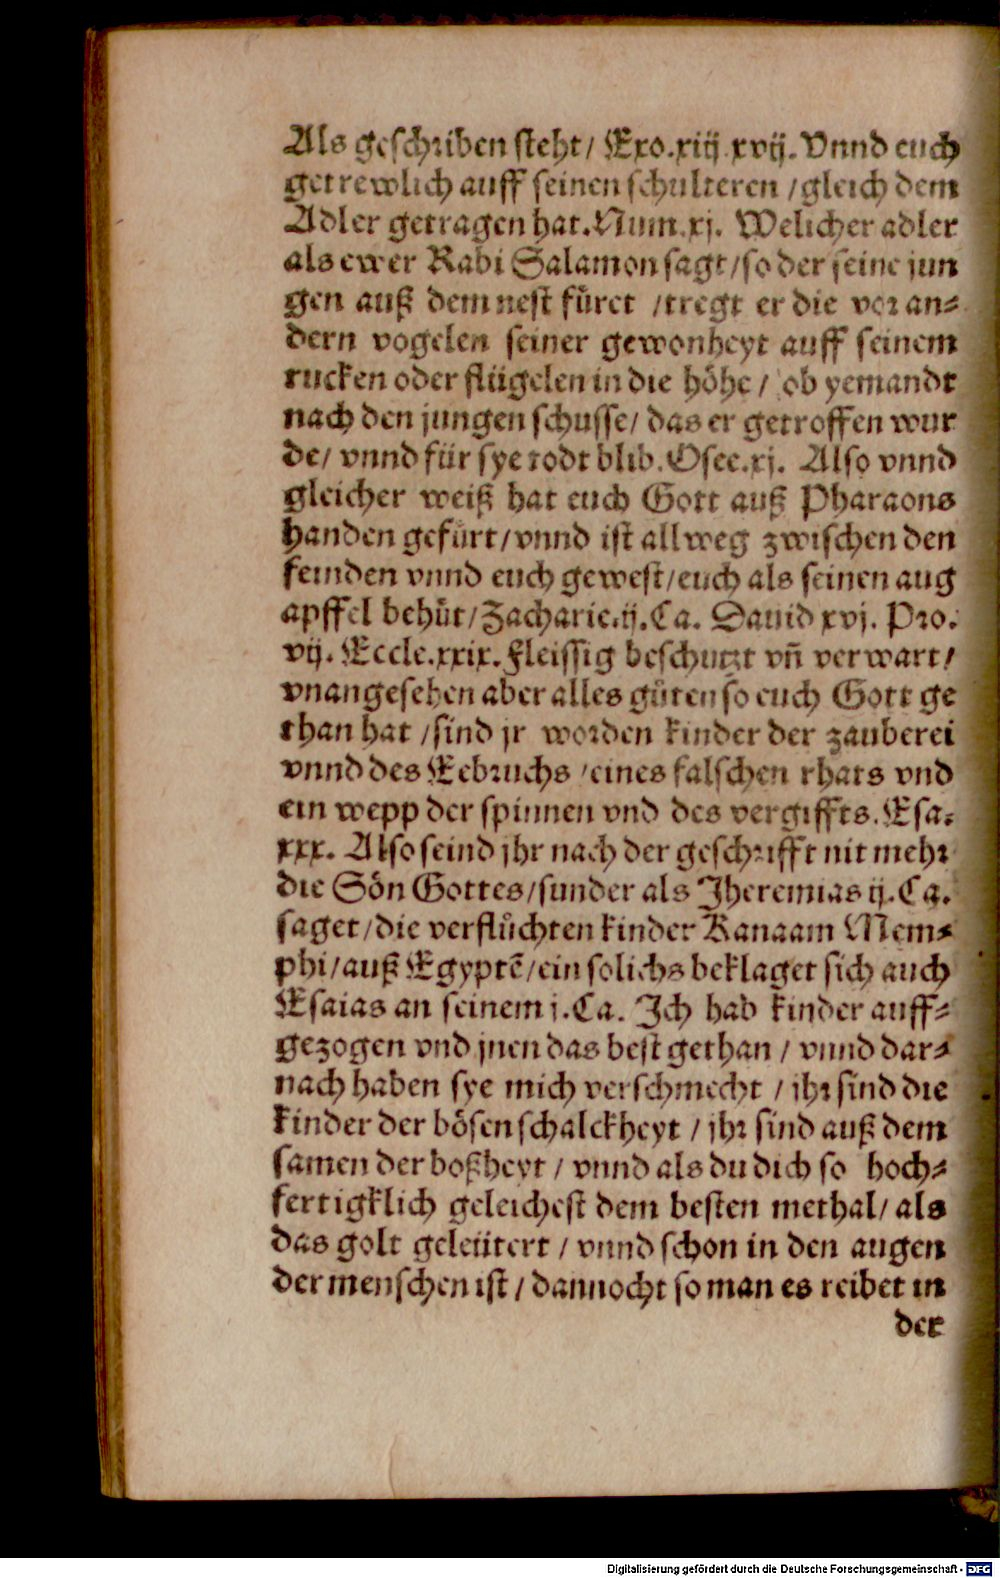 Als geschriben steht/ Exo.xiij xvij. Vnnd euch
getrewlich auff seinen schulteren /gleich dem
Adler getragen hat. Num.xj. Welicher adler
als ewer Rabi Salamon sagt/so der seine jun
gen auß dem nest fůret /tregt er die vor an⸗
dern vogelen seiner gewonheyt auff seinem
rucken oder flügelen in die höhe/ ob yemandt
nach den jungen schusse/ das er getroffen wur
de/ vnnd für sye todt blib. Osee.xj. Also vnnd
gleicher weiß hat euch Gott auß Pharaons
handen gefürt/vnnd ist allweg zwischen den
feinden vnnd euch gewest/euch als seinen aug
apffel behůt/Zacharie.ij.Ca. Dauid xvj. Pro.
vij. Eccle.xxix. fleissig beschutzt vñ verwart/
vnangesehen aber alles gůten so euch Gott ge
than hat /sind jr worden kinder der zauberei
vnnd des Eebruchs /eines falschen rhats vnd
ein wepp der spinnen vnd des vergiffts. Esa.
xxx. Also seind jhr nach der geschrifft nit mehr
die Sön Gottes/sunder als Jheremias ij.Ca.
saget/die verflůchten kinder Kanaam Mem⸗
phi/auß Egyptē/ein solichs beklaget sich auch
Esaias an seinem j.Ca. Ich hab kinder auff⸗
gezogen vnd jnen das best gethan / vnnd dar⸗
nach haben sye mich verschmecht / jhr sind die
kinder der bösen schalckheyt / jhr sind auß dem
samen der boßheyt / vnnd als du dich so hoch⸗
fertigklich geleichest dem besten methal/ als
das golt geleütert / vnnd schon in den augen
der menschen ist / dannocht so man es reibet in
der
Digitalisierung gefördert durch die Deutsche Forschungsgemeinschaft - DFG